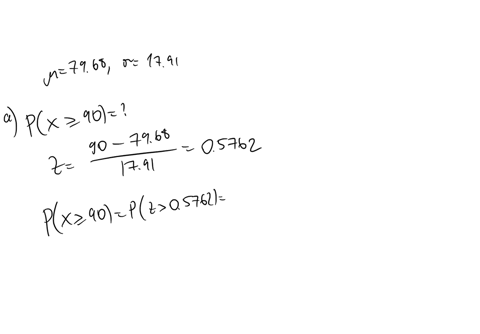 μ=79.68, σ=17.91
a) P(X ≥ 90)=?
z= (90 − 79.68)/17.91 = 0.5762
P(X≥90)=P(z>0.5762)=